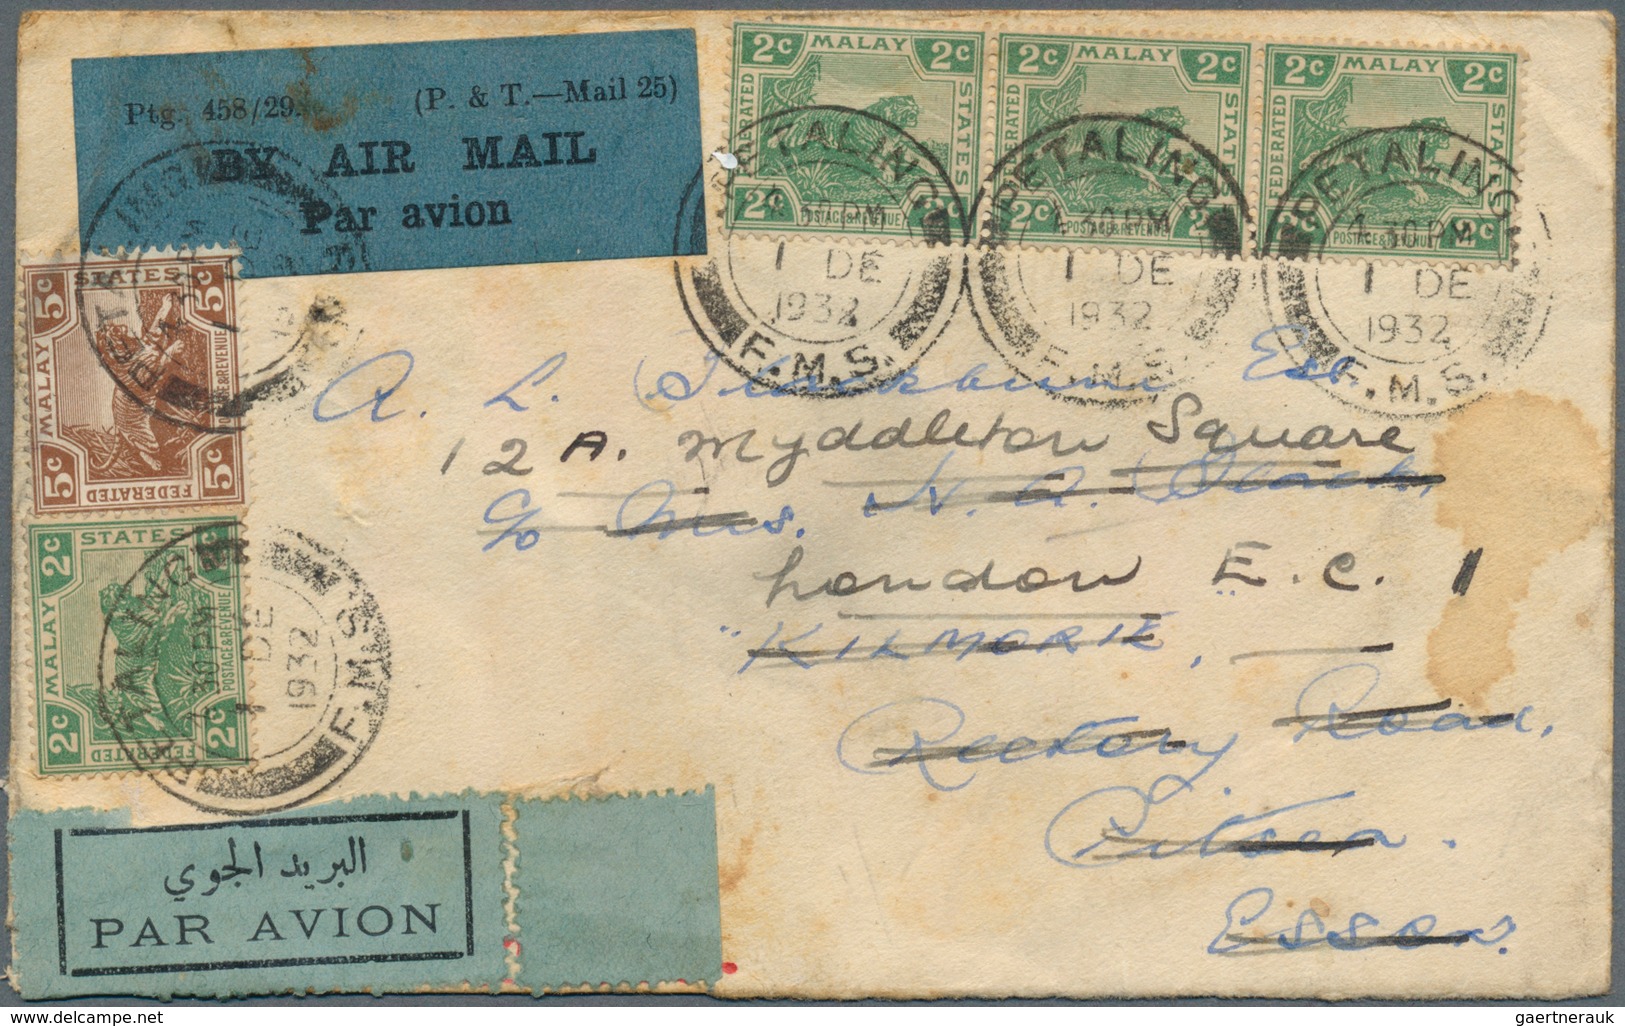 Ptg. 458/29. (P. & T.—Mail 25)
BY AIR MAIL
Par avion
2c MALAY 2c
FEDERATED STATES
2c POSTAGE & REVENUE 2c
2c MALAY 2c
FEDERATED STATES
2c POSTAGE & REVENUE 2c
2c MALAY 2c
FEDERATED STATES
2c POSTAGE & REVENUE 2c
PETALING
4.30 PM
1 DE
1932
F.M.S.
PETALING
4.30 PM
1 DE
1932
F.M.S.
PETALING
4.30 PM
1 DE
1932
F.M.S.
5c MALAY 5c
FEDERATED STATES
5c POSTAGE & REVENUE 5c
PETALING
2c MALAY 2c
FEDERATED STATES
2c POSTAGE & REVENUE 2c
PETALING
4.30 PM
1 DE
1932
F.M.S.
A. L. Esq.
12 A. Myddleton Square
c/o Mrs. H. A.
London E.C. 1
"KILMORIE",
Rectory Road,
Pitsea.
Essex.
البريد الجوي
PAR AVION
gaertnerauk